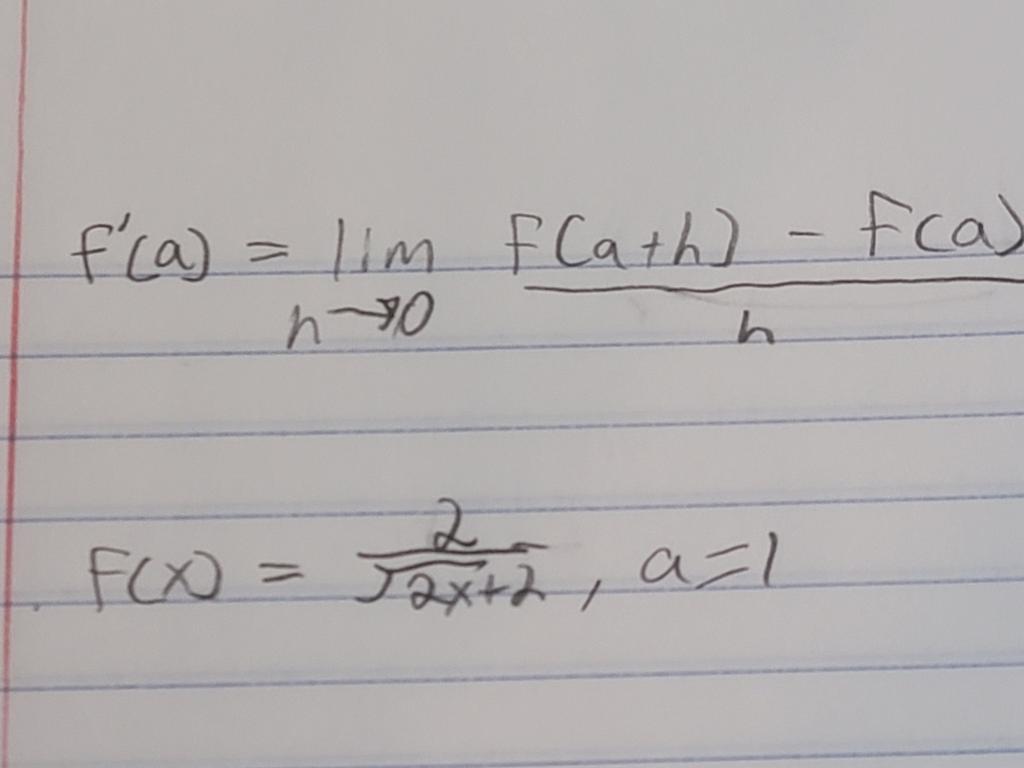 f'(a) = lim F(a+h) - F(a)
h→0 h
F(x) = 2/√2x+2, a=1